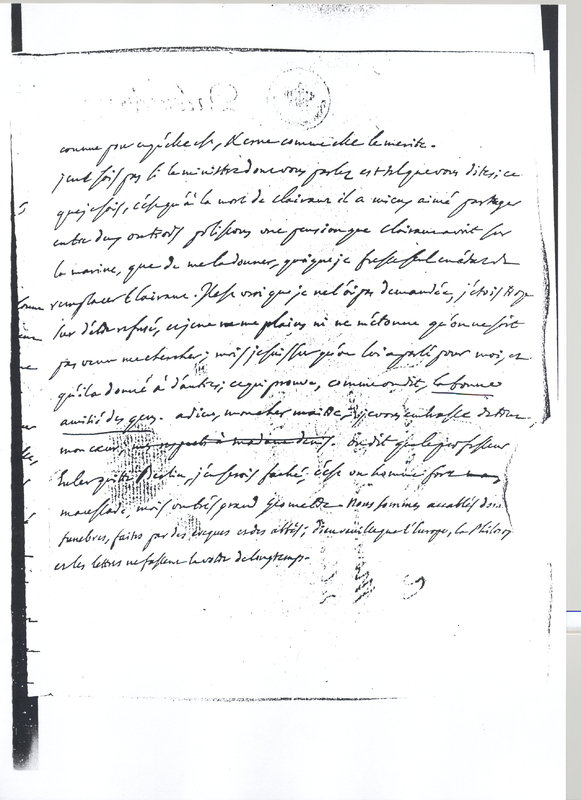 comme pour cet échec, et comme elle le mérite.
je ne sais pas si le ministre dont vous parlez est tel que vous dites; ce
que je sais, c'est qu'à la mort de Clairaut il a mieux aimé partager
entre deux ou trois polissons une pension que Clairaut avoit sur
la marine, que de me la donner, quoique je fusse seul en état de
remplacer Clairaut. Il est vrai que je ne l'ai pas demandée, j'étois trop
sur d'être refusé, et je ne me plains ni ne m'étonne qu'on ne soit
pas venu me chercher; mais je suis sur qu'on lui a parlé pour moi, et
qu'il a donné à d'autres; ce qui prouve, comme on dit, la bonne
amitié des gens. adieu, mon cher maître, je vous embrasse de tout
mon cœur, mes respects à madame denis. on dit que le professeur
Euler quitte Berlin, j'en serois faché, c'est un homme fort
maussade mais un très grand géometre. Nous sommes accablés d'or.
funebres, faites par des éveques et des abbés; Dieu veuille que l'Europe, la Philoso
et les lettres ne fassent la votre de longtemps.